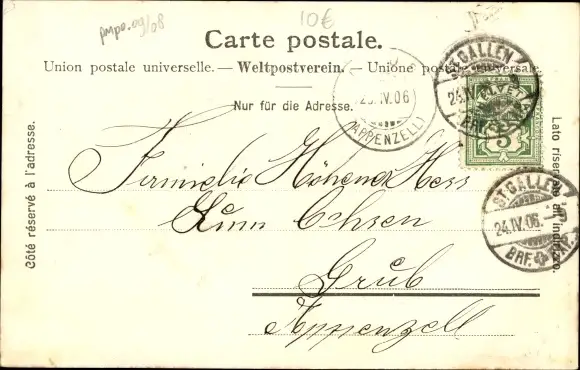 pmpo.09/08
10€
Carte postale.
Union postale universelle. — Weltpostverein. — Unione postale universale.
Nur für die Adresse.
Côté réservé à l'adresse.
Lato riservato all'indirizzo.
25.IV.06
(APPENZELL)
ST. GALLEN
24.IV.06.
BRF.
HELVETIA
5
ST. GALLEN
24.IV.06.
BRF.
Höhener Hess
Zum Ochsen
Grub
Appenzell